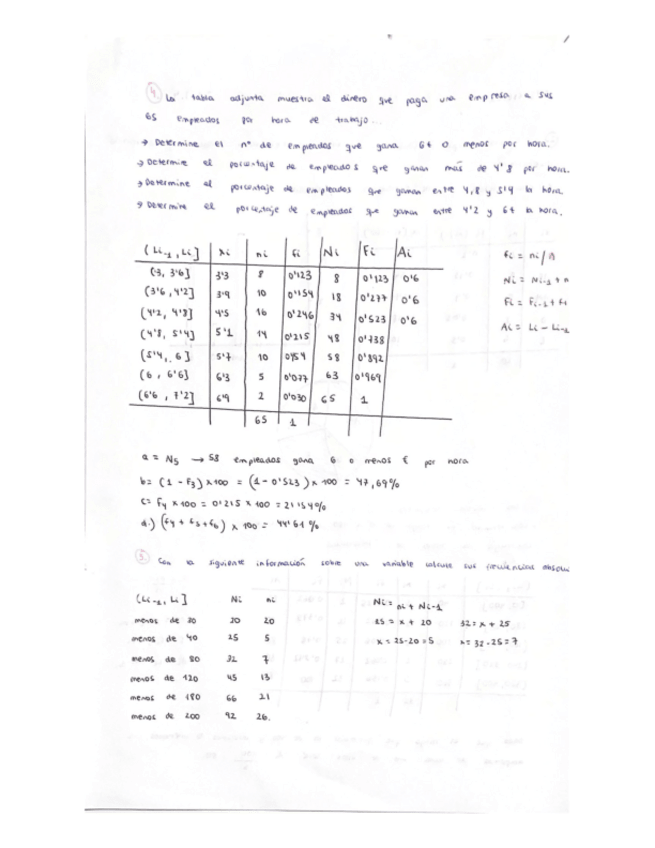 4. La tabla adjunta muestra el dinero que paga una empresa a sus
65 empleados por hora de trabajo.
→ Determine el nº de empleados que gana 6€ o menos por hora.
→ Determine el porcentaje de empleados que ganan más de 4'8 por hora.
→ Determine el porcentaje de empleados que ganan entre 4,8 y 5'4 la hora.
→ Determine el porcentaje de empleados que ganan entre 4'2 y 6€ la hora.
(Li-1, Li] xi ni fi Ni Fi Ai fi = ni/n
(3, 3'6] 3'3 8 0'123 8 0'123 0'6 Ni = Ni-1 + n
(3'6, 4'2] 3'9 10 0'154 18 0'277 0'6 Fi = Fi-1 + fi
(4'2, 4'8] 4'5 16 0'246 34 0'523 0'6 Ai = Li - Li-1
(4'8, 5'4] 5'1 14 0'215 48 0'738
(5'4, 6] 5'7 10 0'154 58 0'892
(6, 6'6] 6'3 5 0'077 63 0'969
(6'6, 7'2] 6'9 2 0'030 65 1
65 1
a = N5 → 58 empleados gana 6 o menos € por hora
b = (1 - F3) x 100 = (1 - 0'523) x 100 = 47,69%
c = f4 x 100 = 0'215 x 100 = 21'54%
d.) (f4 + f5 + f6) x 100 = 44'61%
5. Con la siguiente información sobre una variable calcule sus frecuencias absolu
(Li-1, Li] Ni ni Ni = ni + Ni-1
menos de 20 20 20 25 = x + 20 32 = x + 25
menos de 40 25 5 x = 25-20 = 5 x = 32-25 = 7
menos de 80 32 7
menos de 120 45 13
menos de 180 66 21
menos de 200 92 26.